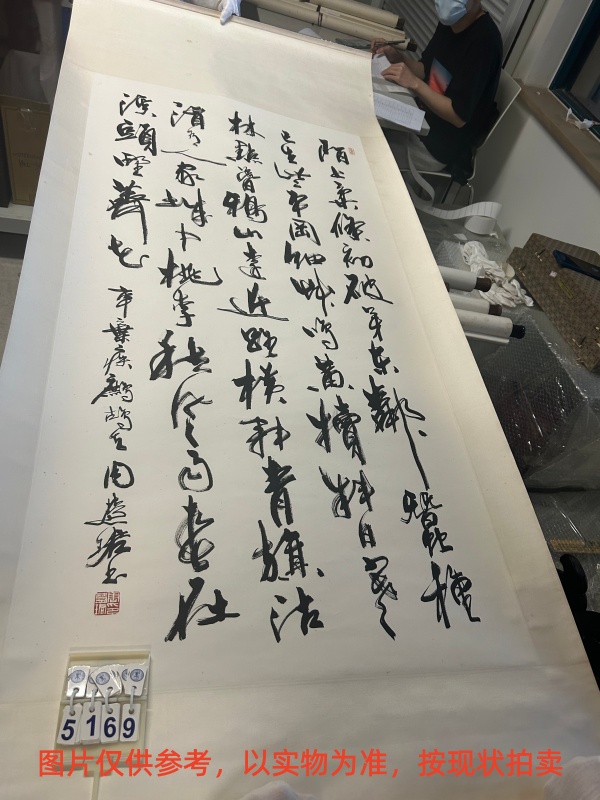 陌上柔條初破芽東鄰蠶種
已生些平岡細艸鳴黃犢斜日寒
林點暮鴉山遠近路橫斜青旗沽
酒有人家城中桃李愁風雨春在
溪頭野薺花
辛棄疾鷓鴣天周慧珺書
5169
图片仅供参考，以实物为准，按现状拍卖